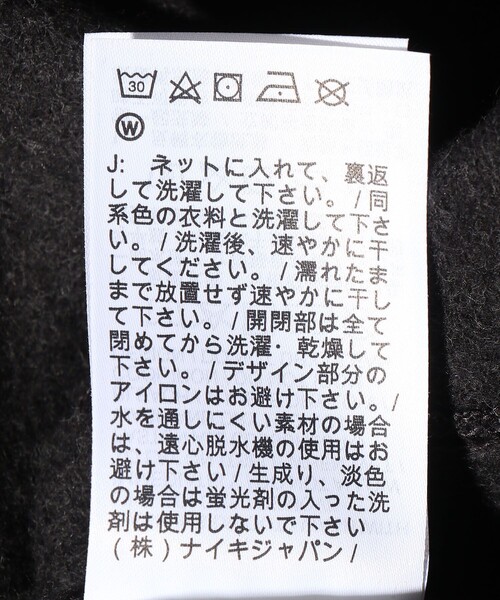 30
W
J: ネットに入れて、裏返
して洗濯して下さい。/同
系色の衣料と洗濯して下さ
い。/洗濯後、速やかに干
してください。/濡れたま
まで放置せず速やかに干し
て下さい。/開閉部は全て
閉めてから洗濯・乾燥して
下さい。/デザイン部分の
アイロンはお避け下さい。/
水を通しにくい素材の場合
は、遠心脱水機の使用はお
避け下さい/生成り、淡色
の場合は蛍光剤の入った洗
剤は使用しないで下さい
(株)ナイキジャパン/